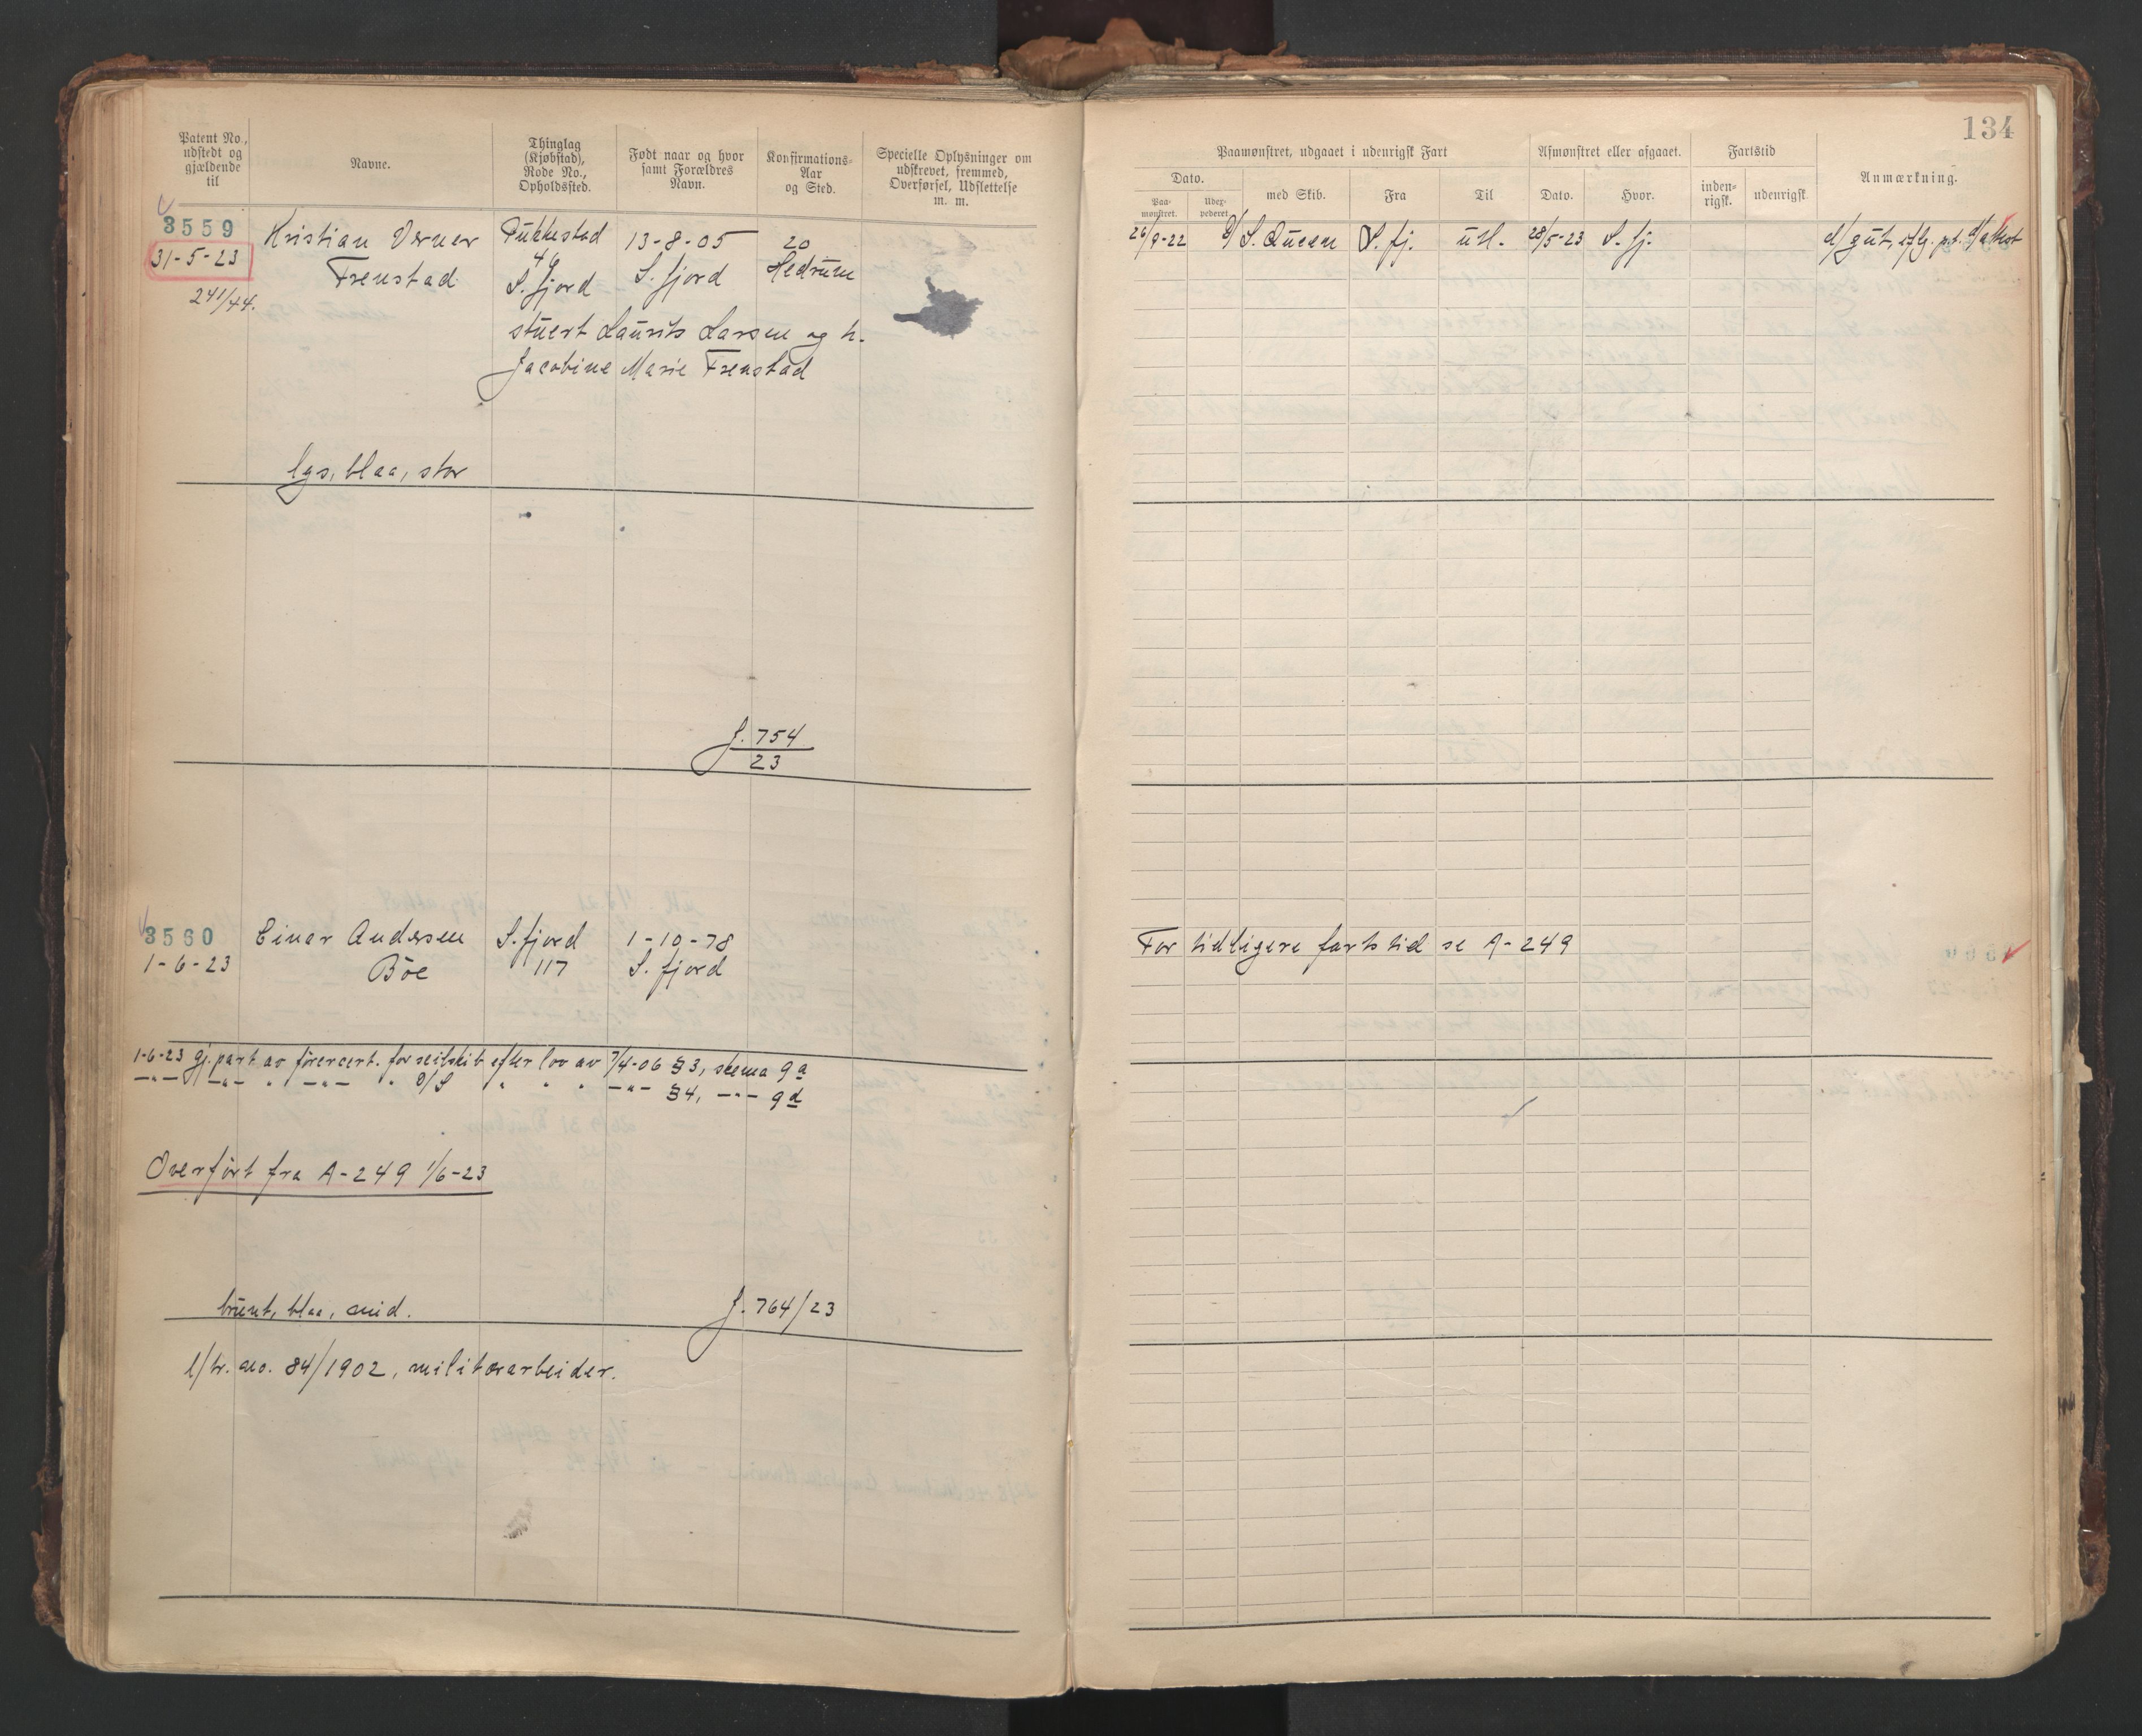 134
Patent No., udstedt og gjældende til
Navne.
Thinglag (Kjøbstad), Rode No., Opholdssted.
Født naar og hvor samt Forældres Navn.
Konfirmations-Aar og Sted.
Specielle Oplysninger om udskrevet, fremmed, Overførsel, Udslettelse m. m.
Paamønstret, udgaaet i udenrigsk Fart
Afmønstret eller afgaaet.
Fartstid
Anmærkning.
Dato.
med Skib.
Fra
Til
Dato.
Hvor.
inden-rigsk.
udenrigsk
Paa-mønstret.
Udex-pederet.
3559 Kristian Verner Pukkestad 13-8-05 20
31-5-23 Frenstad 46 S. fjord S. fjord Hedrum
241/44.
stuert Laurits Larsen og h.
Jacobine Marie Frenstad
lys, blaa, stor
J. 754
23
26/9-22 D/ S. Queen S. fj. utl. 28/5-23 S. fj. d/gut, iflg.
3560 Einar Andersen S. fjord 1-10-78
1-6-23 Böe 117 S. fjord
For tidligere fartstid se A-249
1-6-23 gj. part av förercert. for seilskib efter lov av 7/4-06 §3, skema 9a
—"— —"— " —"— " D/S " " " —"— §4, —"— 9d
Overfört fra A-249 1/6-23
brunt, blaa, mid. J. 764/23
l/nr. 84/1902, militærarbeider.